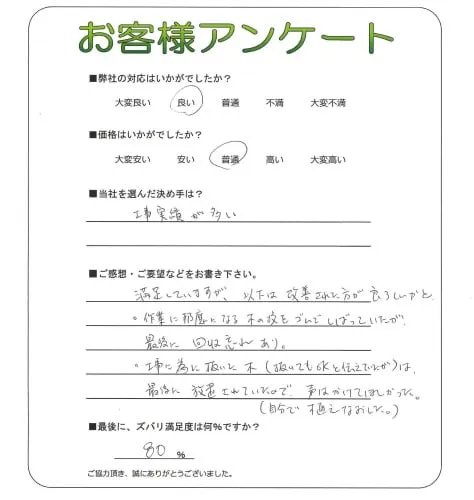 お客様アンケート
■弊社の対応はいかがでしたか？
大変良い 良い 普通 不満 大変不満
■価格はいかがでしたか？
大変安い 安い 普通 高い 大変高い
■当社を選んだ決め手は？
工事実績が多い
■ご感想・ご要望などをお書き下さい。
満足していますが、以下は改善された方が良ろしいかと
。作業に邪魔となる木の枝をゴムでしばっていたが
最後に回収忘れあり。
。工事に為に抜いた木(抜いてもOKと伝えていたが)は、
最後に放置されていたので、声はかけてほしかった。
(自分で植えなおした。)
■最後に、ズバリ満足度は何%ですか？
80 %
ご協力頂き、誠にありがとうございました。